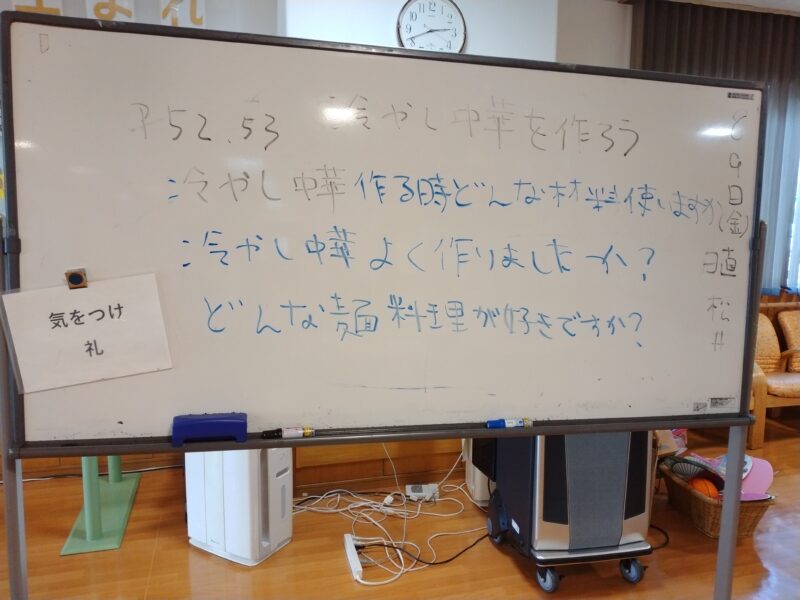 P52.53 冷やし中華を作ろう
冷やし中華作る時どんな材料使いますか
冷やし中華よく作りましたか?
どんな麺料理が好きですか?
9日(金)
日直 松井
気をつけ
礼